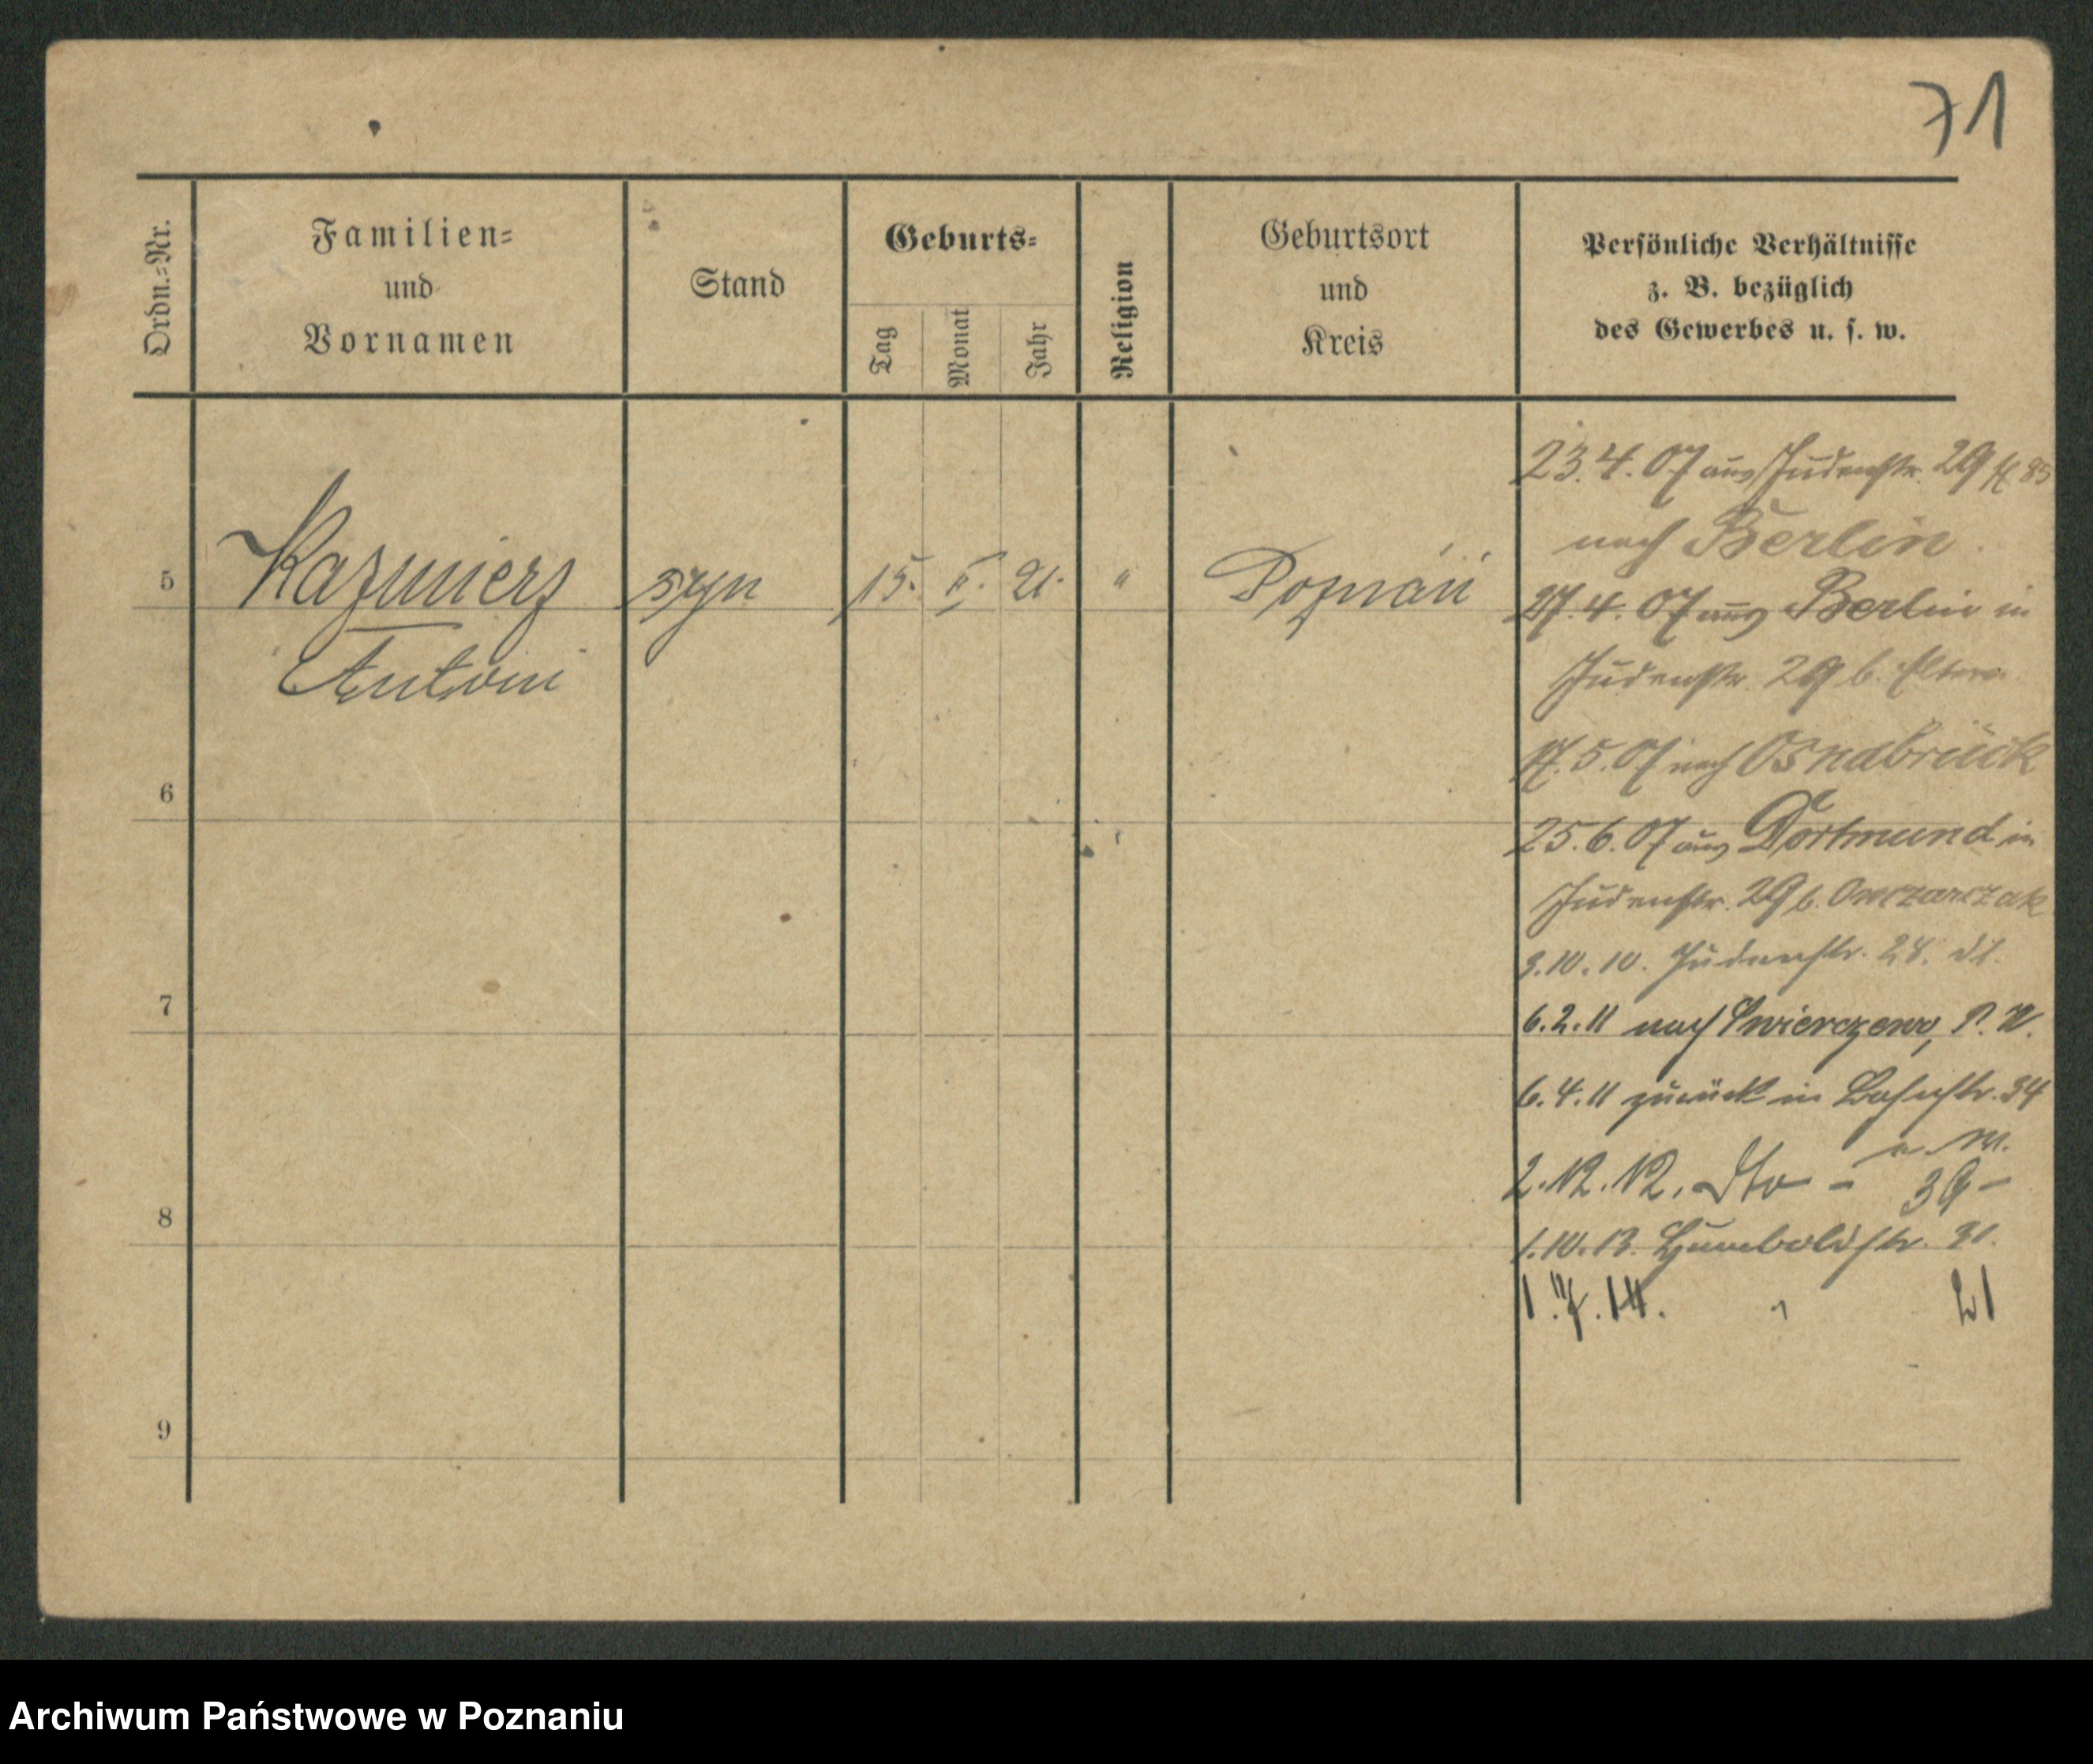 71
Ordn.=Nr.
Familien=
und
Vornamen
Stand
Geburts=
Tag
Monat
Jahr
Religion
Geburtsort
und
Kreis
Persönliche Verhältnisse
z. B. bezüglich
des Gewerbes u. s. w.
5 Kazimierz syn 15. II. 21. " Poznań
Antoni
6
7
8
9
23.4.07 aus Judenstr. 29
nach Berlin.
27.4.07 aus Berlin in
Judenstr. 29 b. Eltern
17.5.07 nach Osnabrück
25.6.07 aus Dortmund in
Judenstr. 29 b. Owczarczak
3.10.10. Judenstr. 28.
6.2.11 nach Swierczewo, P. W.
6.4.11 zurück in Bahnstr. 34
2.12.12. dto - 39 -
1.10.13. Humboldstr. 31.
1.7.14. " 21
Archiwum Państwowe w Poznaniu